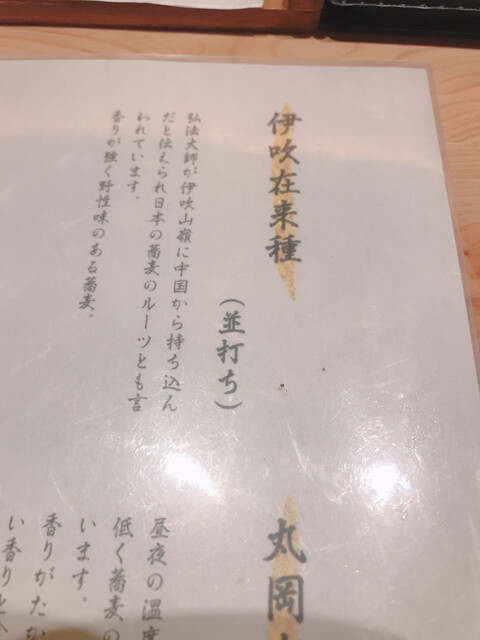 伊吹在来種
(並打ち)
弘法大師が伊吹山嶺に中国から持ち込ん
だと伝えられ日本の蕎麦のルーツとも言
われています。
香りが強く野性味のある蕎麦。
丸岡
昼夜の温度
低く蕎麦の
います。
香りがたか
い香りと